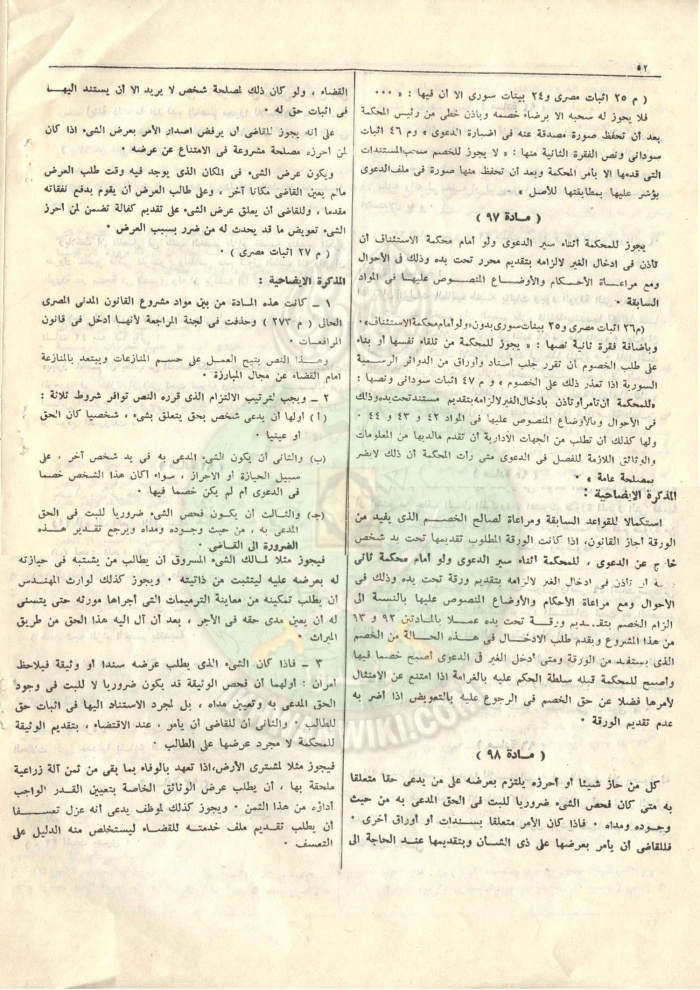 ٥٢
( م ٢٥ اثبات مصرى و٢٤ بينات سورى الا أن فيها : « ٠٠٠
فلا يجوز له سحبه الا برضاء خصمه وباذن خطى من رئيس المحكمة
بعد أن تحفظ صورة مصدقة عنه فى اضبارة الدعوى » وم ٤٦ اثبات
سودانى ونص الفقرة الثانية منها : « لا يجوز للخصم سحب المستندات
التى قدمها الا بأمر المحكمة وبعد أن تحفظ منها صورة فى ملف الدعوى
يؤشر عليها بمطابقتها للأصل » ٠
( مـادة ٩٧ )
يجوز للمحكمة أثناء سير الدعوى ولو أمام محكمة الاستئناف أن
تأذن فى ادخال الغير لالزامه بتقديم محرر تحت يده وذلك فى الأحوال
ومع مراعـاة الأحـكام والأوضـاع المنصـوص عليهـا فى المواد
السابقة ٠
(م٢٦ اثبات مصرى و٢٥ بينات سورى بدون«ولو أمام محكمة الاستئناف»
وباضافة فقرة ثانية نصها : « يجوز للمحكمة من تلقاء نفسها أو بناء
على طلب الخصوم أن تقرر جلب أسناد وأوراق من الدوائر الرسمية
السورية اذا تعذر ذلك على الخصوم » و م ٤٧ اثبات سودانى ونصها :
«للمحكمة أن تأمر أو تأذن بادخال الغير لالزامه بتقديم مستند تحت يده وذلك
فى الأحوال وبالأوضاع المنصوص عليها فى المواد ٤٢ و ٤٣ و ٤٤ ٠
ولها كذلك أن تطلب من الجهات الادارية أن تقدم مالديها من المعلومات
والوثائق اللازمة للفصل فى الدعوى متى رأت المحكمة أن ذلك لايضر
بمصلحة عامة » ٠
المذكرة الايضاحية :
استكمالا للقواعد السابقة ومراعاة لصالح الخصـم الذى يفيد من
الورقة أجاز القانون، اذا كانت الورقة المطلوب تقديمها تحت يد شخص
خارج عن الدعوى ، للمحكمة أثناء سير الدعوى ولو أمام محكمة ثانى
أن تأذن فى ادخال الغير لالزامه بتقديم ورقة تحت يده وذلك فى
الأحوال ومع مراعاة الأحكام والأوضاع المنصوص عليها بالنسبة الى
الزام الخصم بتقـديم ورقـة تحـت يده عمـلا بالمـادتين ٩٢ و ٩٣
من هذا المشروع ويقدم طلب الادخـال فى هـذه الحـالة من الخصم
الذى يستفيد من الورقة ومتى أدخل الغير فى الدعوى أصبح خصما فيها
وأصبح للمحكمة قبله سلطة الحكم عليه بالغرامة اذا امتنع عن الامتثال
لأمرها فضلا عن حق الخصم فى الرجوع عليه بالتعويض اذا أضر به
عدم تقديم الورقة ٠
( مـادة ٩٨ )
كل من حاز شيئا أو أحرزه يلتزم بعرضه على من يدعى حقا متعلقا
به متى كان فحص الشىء ضروريا للبت فى الحق المدعى به من حيث
وجوده ومداه ٠ فاذا كان الأمر متعلقا بسندات أو أوراق أخرى ٠
فللقاضى أن يأمر بعرضها على ذى الشـأن وبتقديمها عنـد الحاجة الى
القضاء ، ولو كان ذلك لمصلحة شخص لا يريد الا أن يستند اليهـا
فى اثبات حق له ٠
على أنه يجوز للقاضى أن يرفض اصدار الأمر بعرض الشىء اذا كان
لمن أحرزه مصلحة مشروعة فى الامتناع عن عرضه ٠
ويكون عرض الشىء فى المكان الذى يوجد فيه وقت طلب العرض
مالم يعين القاضى مكانا آخر ، وعلى طالب العرض أن يقوم بدفع نفقاته
مقدما ، وللقاضى أن يعلق عرض الشىء على تقديم كفالة تضمن لمن أحرز
الشىء تعويض ما قد يحدث له من ضرر بسبب العرض ٠
( م ٢٧ اثبات مصرى ) ٠
المذكرة الايضاحية :
١ ــ كانت هذه المـادة من بين مواد مشروع القانون المدنى المصرى
الحالى ( م ٢٧٣ ) وحذفت فى لجنة المراجعة لأنهـا أدخل فى قانون
المرافعـات ٠
وهـذا النص يتيح العمل على حسـم المنازعات ويبتعد بالمنازعة
أمام القضاء عن مجال المبارزة ٠
٢ ــ ويجب لترتيب الالتزام الذى قرره النص توافر شروط ثلاثة :
( أ ) أولها أن يدعى شخص بحق يتعلق بشىء ، شخصيا كان الحق
أو عينيا ٠
(ب) والثانى أن يكون الشىء المدعى به فى يد شخص آخر ، على
سبيل الحيازة أو الاحراز ، سواء أكان هذا الشخص خصما
فى الدعوى أم لم يكن خصما فيها ٠
(جـ) والثالث أن يكـون فحص الشىء ضروريا للبت فى الحق
المدعى به ، من حيث وجوده ومداه ويرجع تقدير هـذه
الضرورة الى القـاضى ٠
فيجوز مثلا لمـالك الشىء المسروق أن يطالب من يشتبه فى حيازته
له بعرضه عليه ليتثبت من ذاتيته ٠ ويجوز كذلك لوارث المهندس
أن يطلب تمكينه من معاينة الترميمات التى أجراها مورثه حتى يتسنى
له أن يعين مدى حقه فى الأجر ، بعد أن آل اليه هذا الحق من طريق
الميراث ٠
٣ ــ فاذا كان الشىء الذى يطلب عرضه سندا أو وثيقة فيلاحظ
أمران : أولهما أن فحص الوثيقة قد يكون ضروريا لا للبت فى وجود
الحق المدعى به وتعيين مداه ، بل لمجرد الاستناد اليها فى اثبات حق
للطالب ٠ والثانى أن للقاضى أن يأمر ، عند الاقتضاء ، بتقديم الوثيقة
للمحكمة لا مجرد عرضها على الطالب ٠
فيجوز مثلا لمشترى الأرض،اذا تعهد بالوفاء بما بقى من ثمن آلة زراعية
ملحقة بها ، أن يطلب عرض الوثائق الخاصة بتعيين القـدر الواجب
أداؤه من هذا الثمن ٠ ويجوز كذلك لموظف يدعى أنه عزل تعسـفا
أن يطلب تقديم ملف خدمتـه للقضـاء ليستخلص منه الدليل على
التعسف ٠